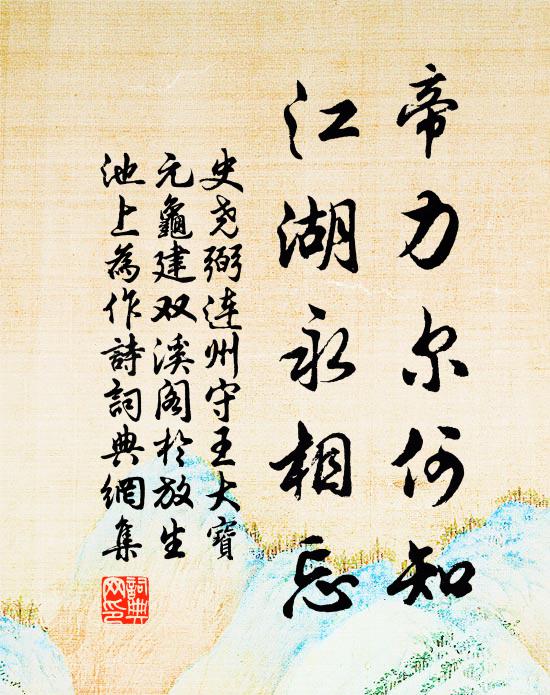 帝力尔何知
江湖永相忘
史尧弼连州守王大寶
元龜建双溪阁於放生
池上為作詩詞典網集
詞典
网印